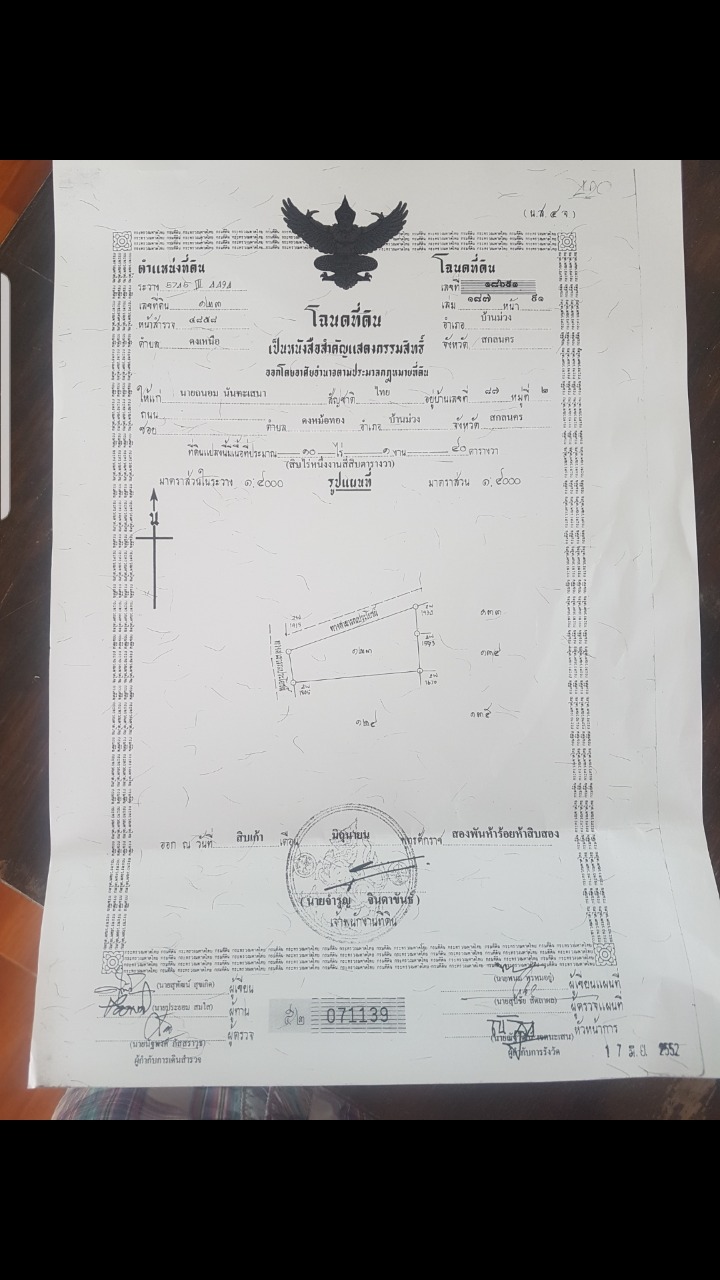 (น.ส. ๔ จ)
ตำแหน่งที่ดิน
ระวาง 5745 III 1191
เลขที่ดิน ๑๒๓
หน้าสำรวจ ๔๘๕๘
ตำบล ดงเหนือ
โฉนดที่ดิน
เลขที่ ๑๘๖๕๑
เล่ม ๑๘๗ หน้า ๕๑
อำเภอ บ้านม่วง
จังหวัด สกลนคร
โฉนดที่ดิน
เป็นหนังสือสำคัญแสดงกรรมสิทธิ์
ออกโดยอาศัยอำนาจตามประมวลกฎหมายที่ดิน
ให้แก่ นายถนอม นันตะเสนา สัญชาติ ไทย อยู่บ้านเลขที่ ๘๗ หมู่ที่ ๒
ถนน
ซอย ตำบล ดงหม้อทอง อำเภอ บ้านม่วง จังหวัด สกลนคร
ที่ดินแปลงนี้มีเนื้อที่ประมาณ ๑๐ ไร่ ๑ งาน ๔๐ ตารางวา
(สิบไร่หนึ่งงานสี่สิบตารางวา)
มาตราส่วนในระวาง ๑:๔๐๐๐ รูปแผนที่ มาตราส่วน ๑:๔๐๐๐
น
ทางสาธารณประโยชน์
๑๒๓
๑๓๓
๑๓๔
๑๒๔
๑๓๕
ออก ณ วันที่ สิบเก้า เดือน มิถุนายน พุทธศักราช สองพันห้าร้อยห้าสิบสอง
(นายจำรูญ จินดาขันธ์)
เจ้าพนักงานที่ดิน
(นายสุพัฒน์ สุขเกิด) ผู้เขียน
(นายประยอม สมใส) ผู้ทาน
ผู้ตรวจ
ผู้กำกับการเดินสำรวจ
๕๒ 071139
ผู้เขียนแผนที่
ผู้ตรวจแผนที่
หัวหน้าการ
ผู้กำกับการรังวัด
17 มิ.ย. 2552